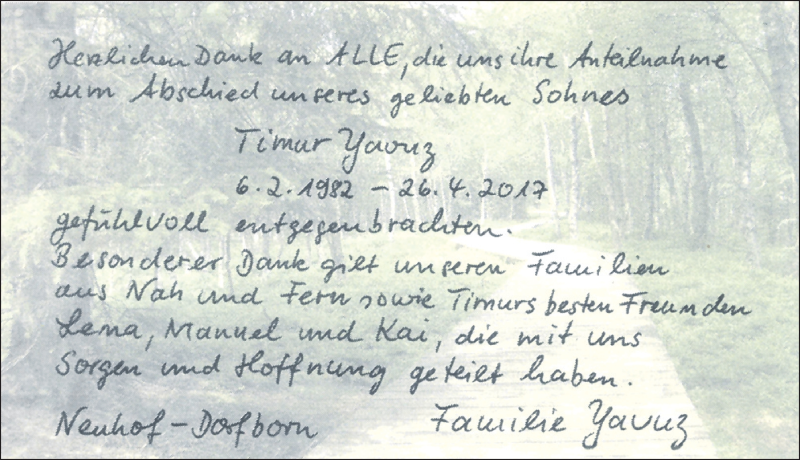 Herzlichen Dank an ALLE, die uns ihre Anteilnahme
zum Abschied unseres geliebten Sohnes
Timur Yavuz
6.2.1982 – 26.4.2017
gefühlvoll entgegenbrachten.
Besonderer Dank gilt unseren Familien
aus Nah und Fern sowie Timurs besten Freunden
Lena, Manuel und Kai, die mit uns
Sorgen und Hoffnung geteilt haben.
Neuhof – Dorfborn
Familie Yavuz